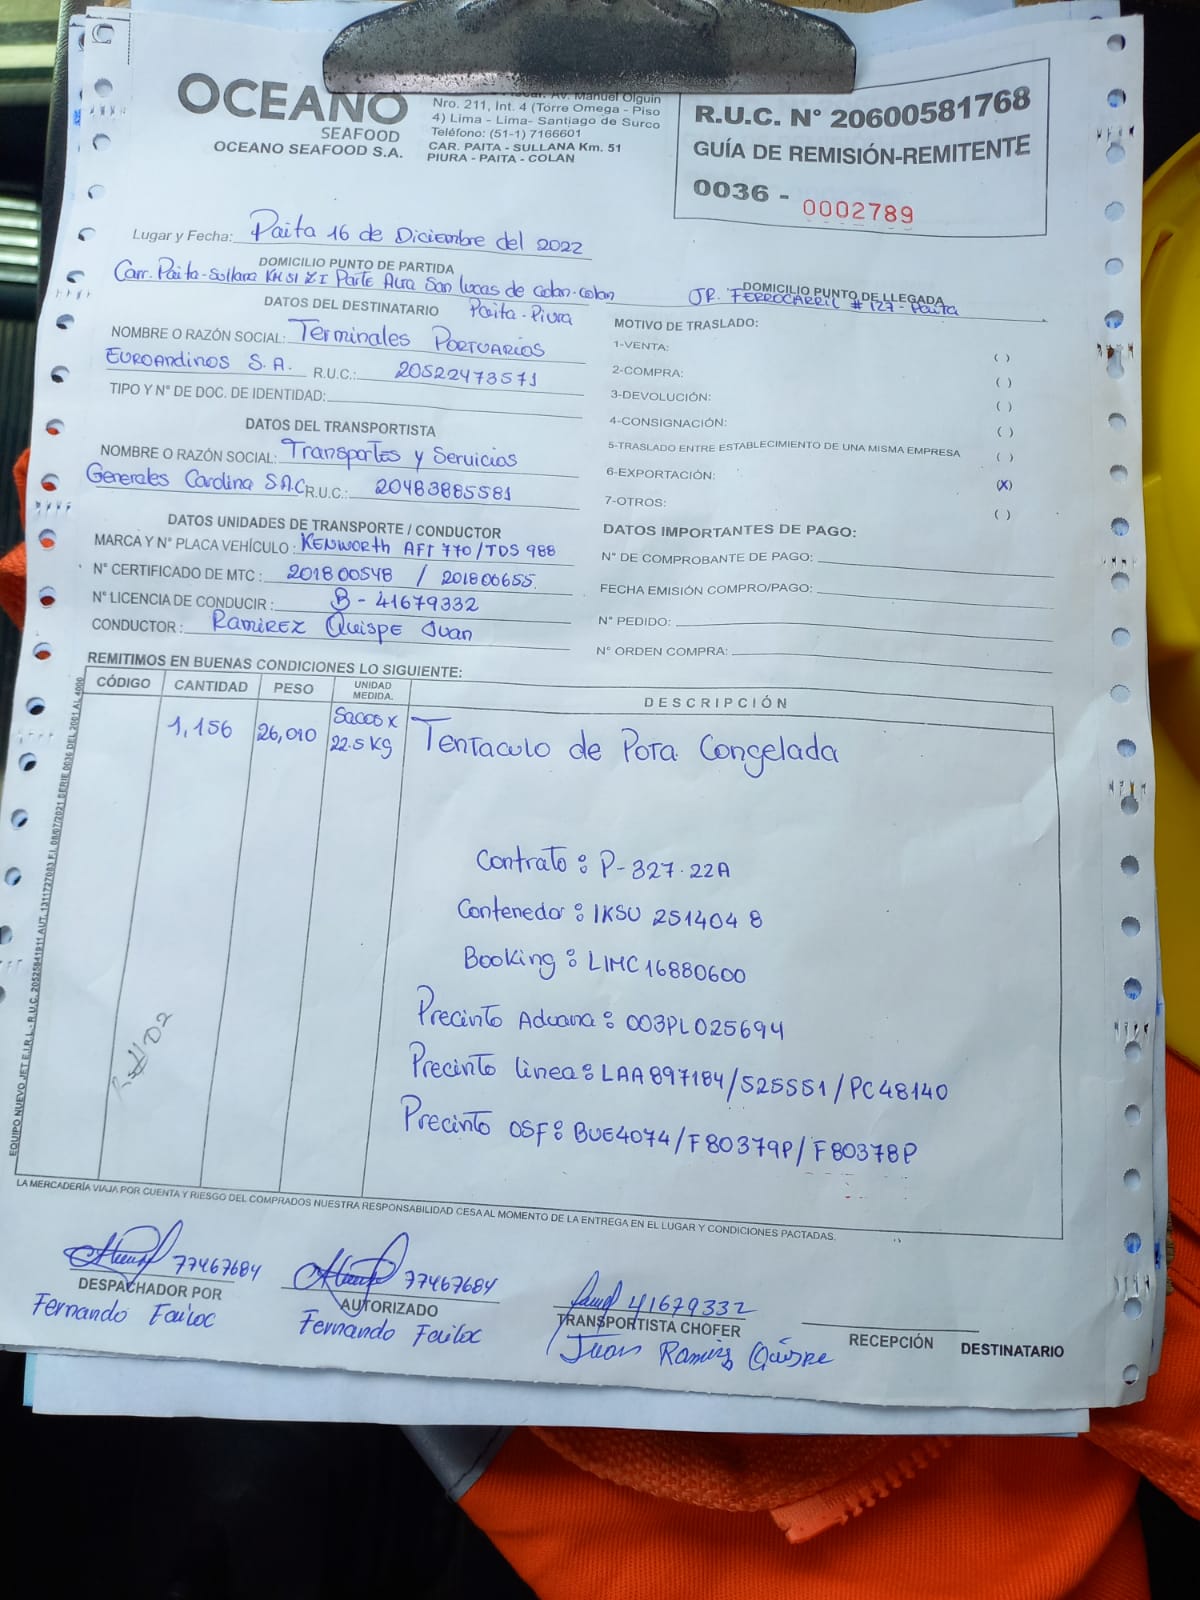 OCEANO
SEAFOOD
OCEANO SEAFOOD S.A.
Fiscal: Av. Manuel Olguin
Nro. 211, Int. 4 (Torre Omega - Piso
4) Lima - Lima- Santiago de Surco
Teléfono: (51-1) 7166601
CAR. PAITA - SULLANA Km. 51
PIURA - PAITA - COLAN
R.U.C. N° 20600581768
GUÍA DE REMISIÓN-REMITENTE
0036 - 0002789
Lugar y Fecha: Paita 16 de Diciembre del 2022
DOMICILIO PUNTO DE PARTIDA
Carr. Paita-Sullana KM 51 ZI Parte Alta San Lucas de Colan-Colan
Paita-Piura
DOMICILIO PUNTO DE LLEGADA
JR. FERROCARRIL # 127 - Paita
DATOS DEL DESTINATARIO
NOMBRE O RAZÓN SOCIAL: Terminales PORTUARIOS
EUROANDINOS S.A. R.U.C.: 20522473571
TIPO Y N° DE DOC. DE IDENTIDAD:
DATOS DEL TRANSPORTISTA
NOMBRE O RAZÓN SOCIAL: Transportes y Servicios
Generales Carolina S.A.C R.U.C.: 20483885581
DATOS UNIDADES DE TRANSPORTE / CONDUCTOR
MARCA Y N° PLACA VEHÍCULO: KENWORTH AFT 770/TDS 988
N° CERTIFICADO DE MTC: 201800548 / 201800655
N° LICENCIA DE CONDUCIR: B - 41679332
CONDUCTOR: RAMIREZ QUISPE Juan
MOTIVO DE TRASLADO:
1-VENTA: ( )
2-COMPRA: ( )
3-DEVOLUCIÓN: ( )
4-CONSIGNACIÓN: ( )
5-TRASLADO ENTRE ESTABLECIMIENTO DE UNA MISMA EMPRESA ( )
6-EXPORTACIÓN: (X)
7-OTROS: ( )
DATOS IMPORTANTES DE PAGO:
N° DE COMPROBANTE DE PAGO:
FECHA EMISIÓN COMPRO/PAGO:
N° PEDIDO:
N° ORDEN COMPRA:
REMITIMOS EN BUENAS CONDICIONES LO SIGUIENTE:
CÓDIGO CANTIDAD PESO UNIDAD MEDIDA. DESCRIPCIÓN
1,156 26,010 Sacos x 22.5 Kg Tentaculo de Pota Congelada
Contrato: P-327-22A
Contenedor: IKSU 251404 8
Booking: LIMC16880600
Precinto Aduana: 003PL025694
Precinto linea: LAA897184/525551/PC48140
Precinto OSF: BUE4074/F80379P/F80378P
EQUIPO NUEVO JET E.I.R.L - R.U.C. 20525841911 AUT. 1311727083 F.I. 08/07/2021 SERIE 0036 DEL 2001 AL 4000
LA MERCADERÍA VIAJA POR CUENTA Y RIESGO DEL COMPRADOS NUESTRA RESPONSABILIDAD CESA AL MOMENTO DE LA ENTREGA EN EL LUGAR Y CONDICIONES PACTADAS.
77467684
DESPACHADOR POR
Fernando Failoc
77467684
AUTORIZADO
Fernando Failoc
41679332
TRANSPORTISTA CHOFER
Juan Ramirez Quispe
RECEPCIÓN DESTINATARIO